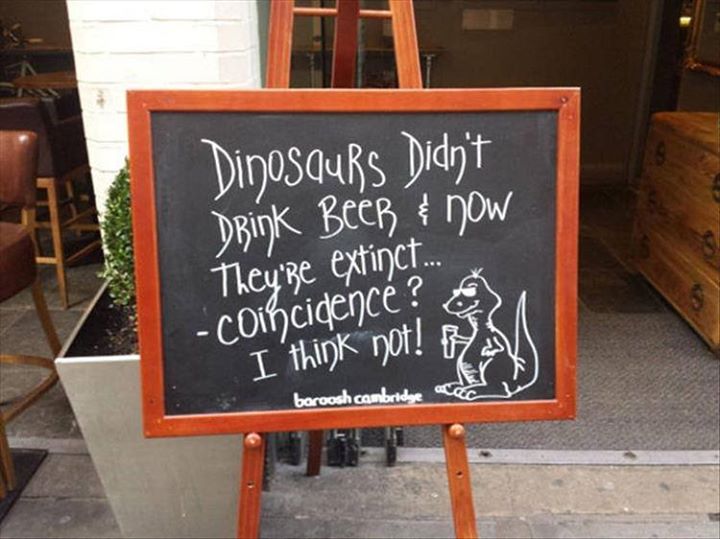 Dinosaurs Didn't
Drink Beer & now
They're extinct...
- coincidence?
I think not!
baroosh cambridge